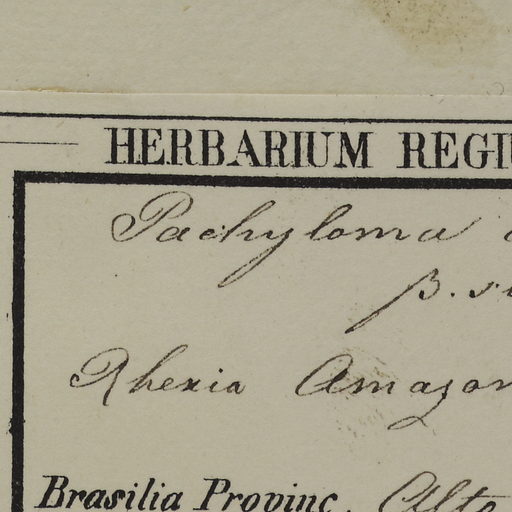 HERBARIUM REGI
Pachyloma
β. s
Rhexia Amazon
Brasilia Provinc. Alto